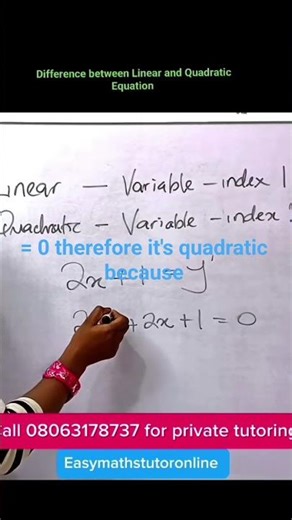 Difference between Linear and Quadratic
Equation
Linear — Variable – index 1
Quadratic – Variable – index
= 0 therefore it's quadratic
because
2x + 1 = y
2 + 2x + 1 = 0
Call 08063178737 for private tutoring
Easymathstutoronline